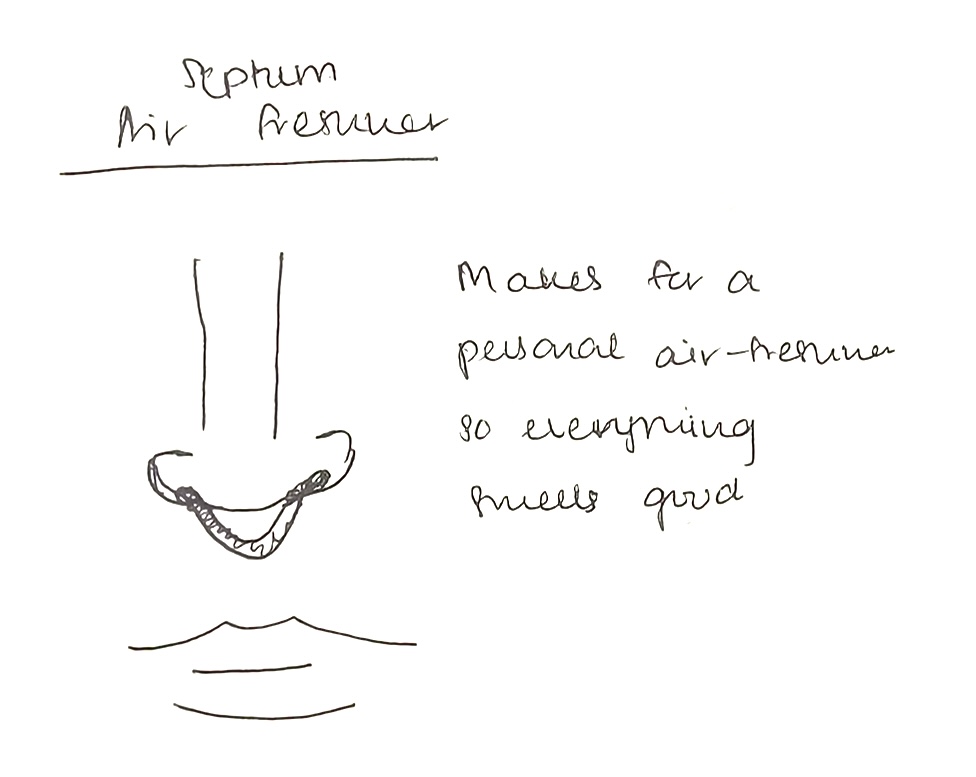 Septum
Air freshner
Makes for a
personal air-freshner
so everything
smells good